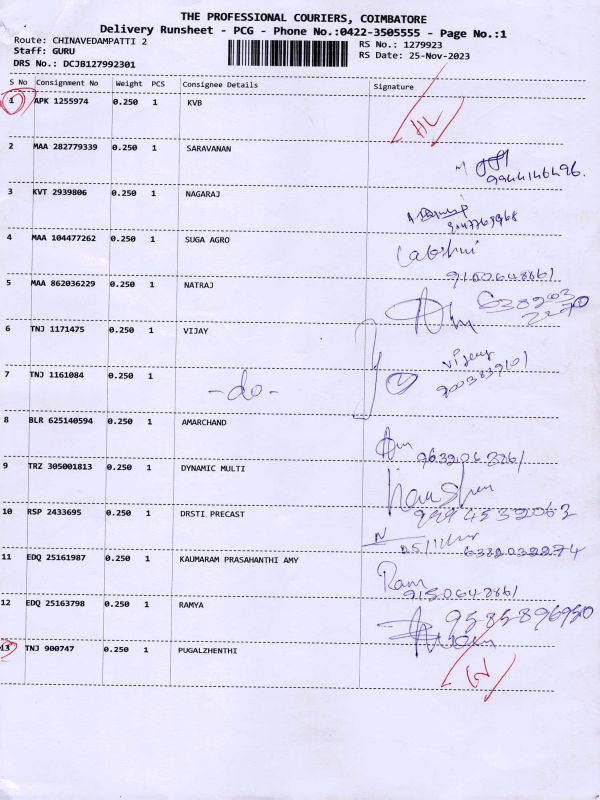 THE PROFESSIONAL COURIERS, COIMBATORE
Delivery Runsheet - PCG - Phone No.:0422-3505555 - Page No.:1
Route: CHINAVEDAMPATTI 2
RS No.: 1279923
Staff: GURU
RS Date: 25-Nov-2023
DRS No.: DCJB127992301
S No Consignment No Weight PCS Consignee Details Signature
1 APK 1255974 0.250 1 KVB
2 MAA 282779339 0.250 1 SARAVANAN
9944146496.
3 KVT 2939806 0.250 1 NAGARAJ
4 MAA 104477262 0.250 1 SUGA AGRO
9150648661
5 MAA 862036229 0.250 1 NATRAJ
6 TNJ 1171475 0.250 1 VIJAY
Vijay
7 TNJ 1161084 0.250 1 -do-
8 BLR 625140594 0.250 1 AMARCHAND
9 TRZ 305001813 0.250 1 DYNAMIC MULTI
9994532063
10 RSP 2433695 0.250 1 DRSTI PRECAST
11 EDQ 25161987 0.250 1 KAUMARAM PRASAHANTHI AMY
Ram
12 EDQ 25163798 0.250 1 RAMYA
13 TNJ 900747 0.250 1 PUGALZHENTHI